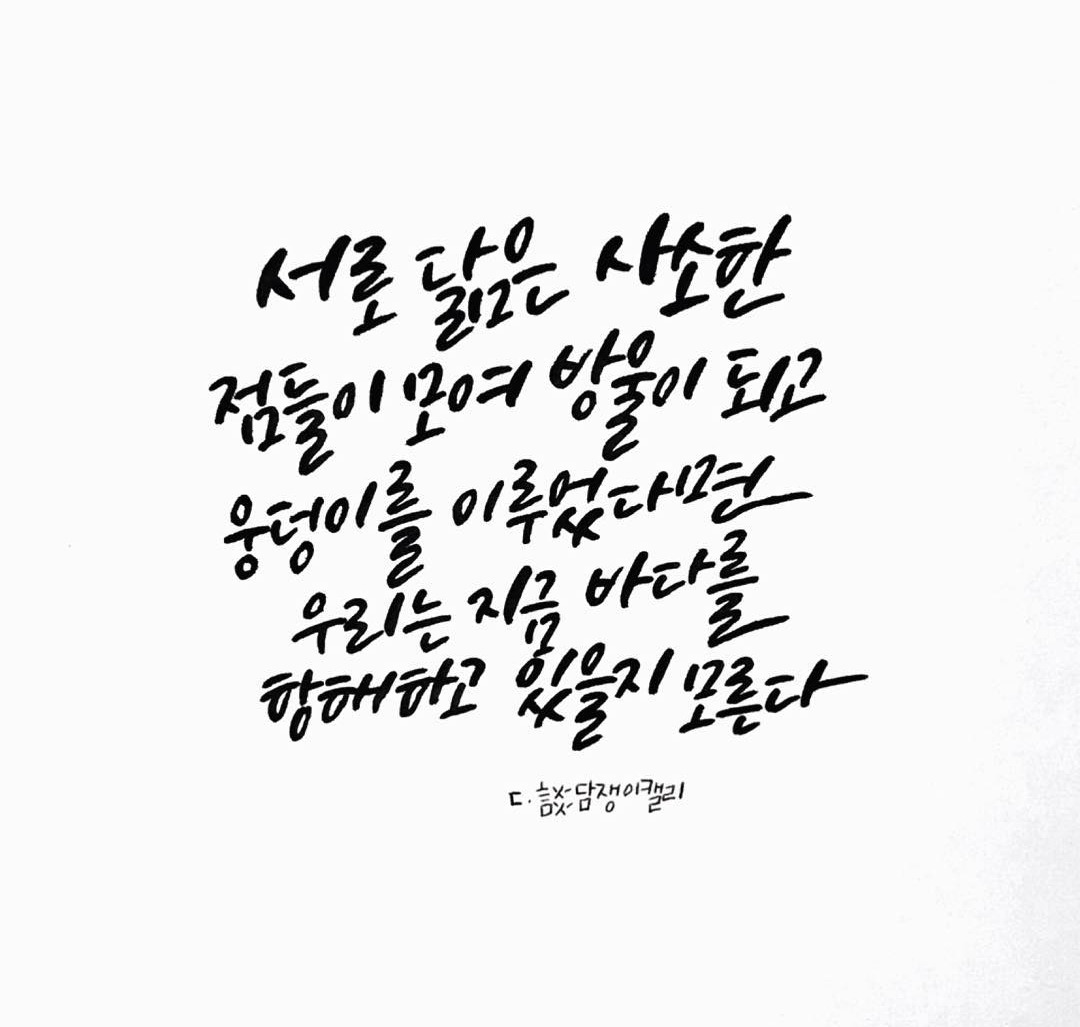 서로 닮은 사소한
점들이 모여 방울이 되고
웅덩이를 이루었다면
우리는 지금 바다를
항해하고 있을지 모른다
ㄷ. 담쟁이캘리